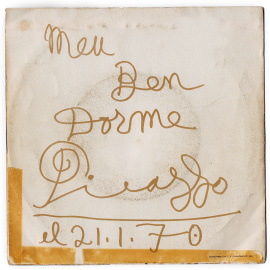 Meu
Ben
Dorme
Picasso
el 21.1.70